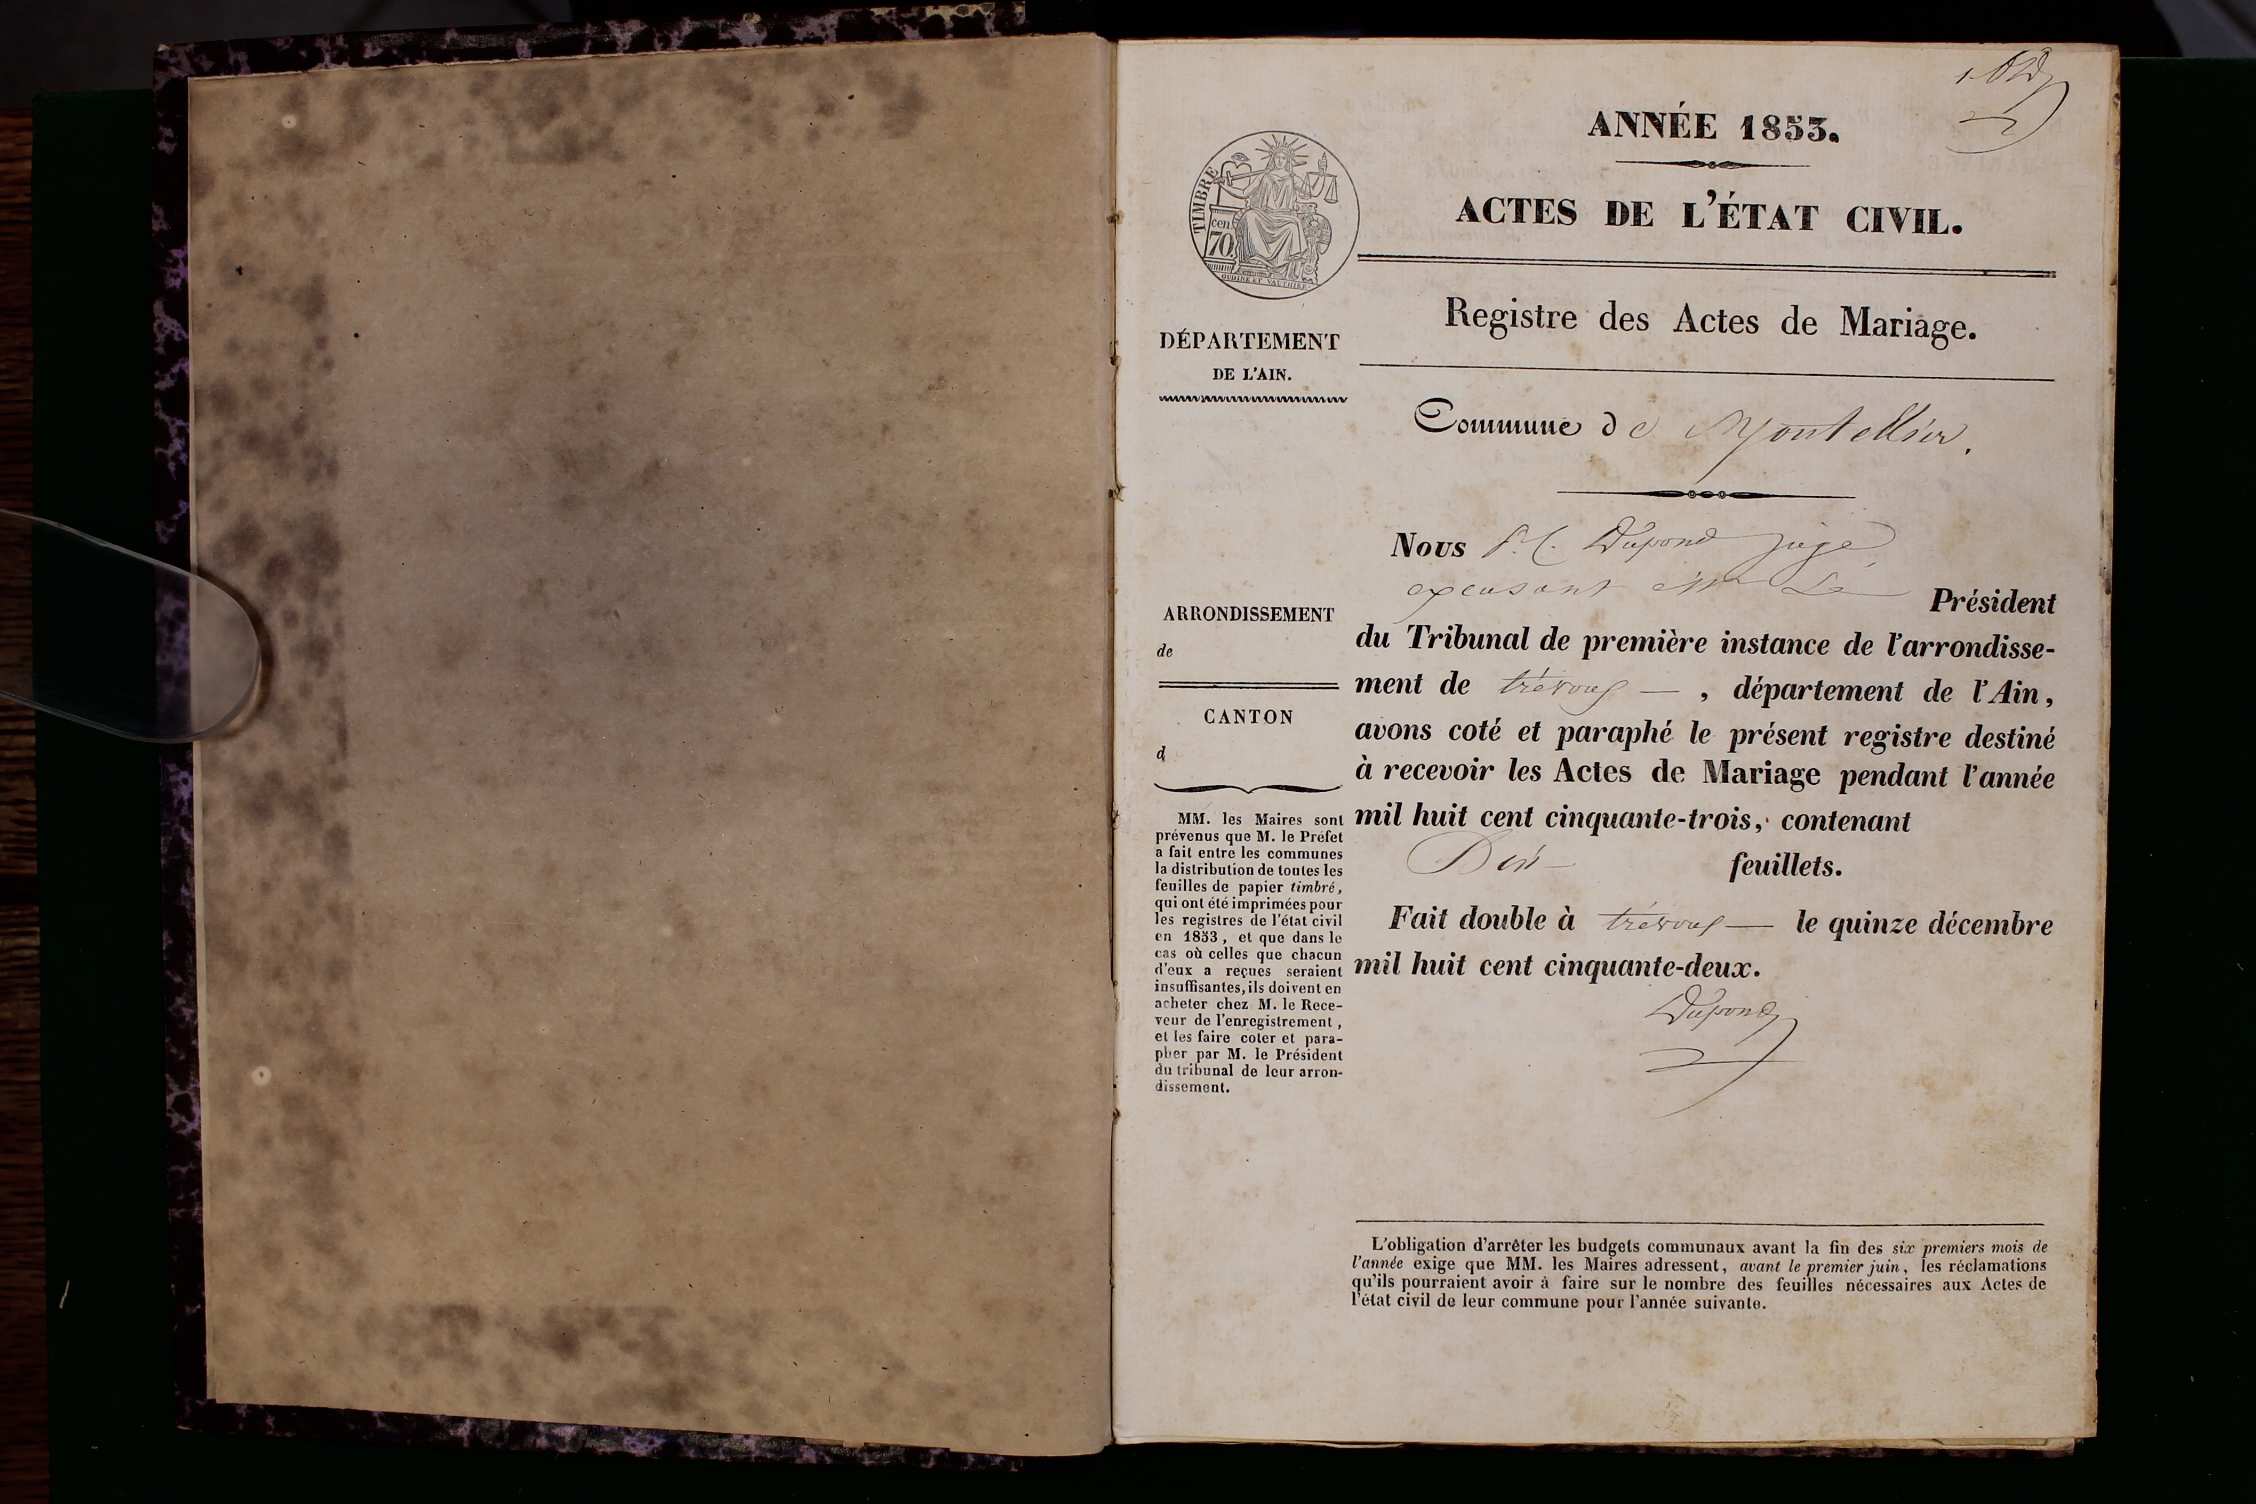 ANNÉE 1853.
ACTES DE L'ÉTAT CIVIL.
TIMBRE
cen.
70.
OUDINÉ ET VAUTHIER
Registre des Actes de Mariage.
DÉPARTEMENT
DE L'AIN.
Commune de Montellier.
Nous P. C. Dupond juge
Président
du Tribunal de première instance de l'arrondisse-
ment de trévoux — , département de l'Ain,
avons coté et paraphé le présent registre destiné
à recevoir les Actes de Mariage pendant l'année
mil huit cent cinquante-trois, contenant
feuillets.
Fait double à trévoux — le quinze décembre
mil huit cent cinquante-deux.
Dupond
ARRONDISSEMENT
de
CANTON
d
MM. les Maires sont
prévenus que M. le Préfet
a fait entre les communes
la distribution de toutes les
feuilles de papier timbré,
qui ont été imprimées pour
les registres de l'état civil
en 1853, et que dans le
cas où celles que chacun
d'eux a reçues seraient
insuffisantes, ils doivent en
acheter chez M. le Rece-
veur de l'enregistrement,
et les faire coter et para-
pher par M. le Président
du tribunal de leur arron-
dissement.
L'obligation d'arrêter les budgets communaux avant la fin des six premiers mois de
l'année exige que MM. les Maires adressent, avant le premier juin, les réclamations
qu'ils pourraient avoir à faire sur le nombre des feuilles nécessaires aux Actes de
l'état civil de leur commune pour l'année suivante.